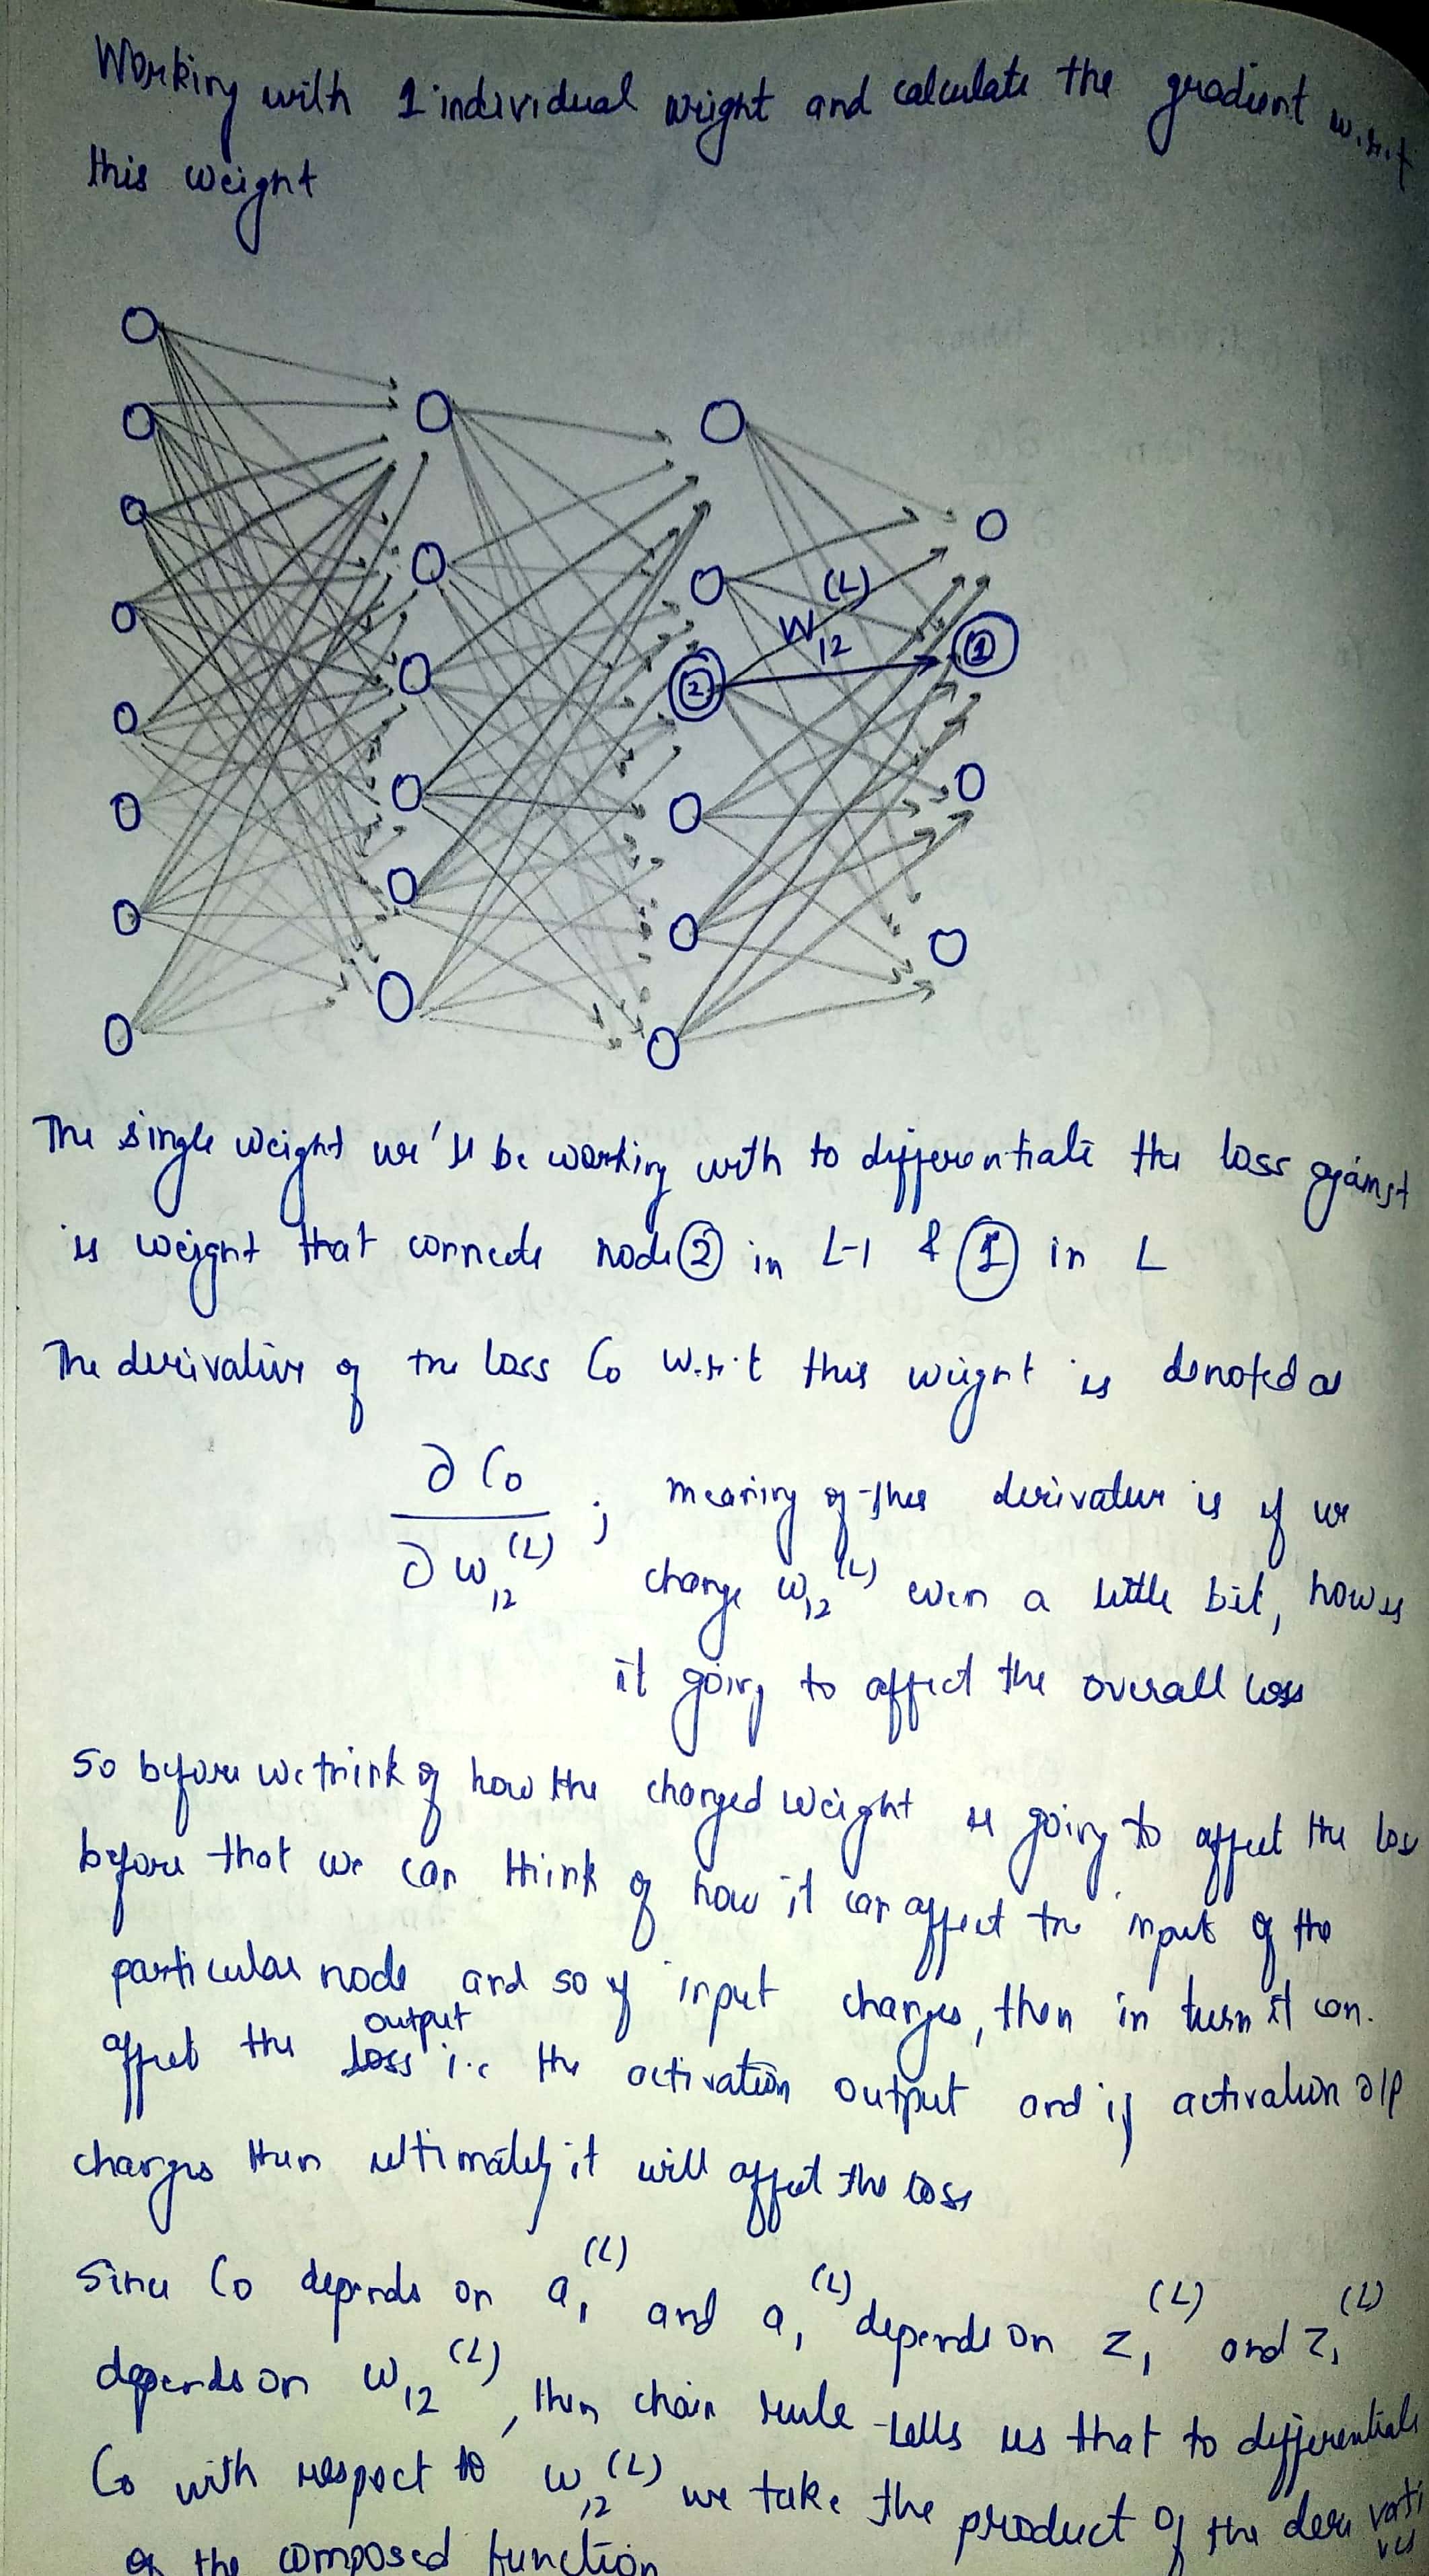 Working with 1 individual weight and calculate the gradient w.r.t
this weight
W12(L)
2
1
The single weight we'll be working with to differentiate the loss against
is weight that connects node ② in L-1 & ① in L
The derivative of the loss C0 w.r.t this weight is denoted as
∂C0 / ∂w12(L) ; meaning of this derivative is if we
change w12(L) even a little bit, how is
it going to affect the overall loss
So before we think of how the changed weight is going to affect the loss
before that we can think of how it can affect the input of the
particular node and so if input changes, then in turn it can
output
affect the loss i.e the activation output and if activation o/p
changes then ultimately it will affect the loss
Since C0 depends on a1(L) and a1(L) depends on z1(L) and z1(L)
depends on w12(L), then chain rule tells us that to differentiate
C0 with respect to w12(L) we take the product of the derivatives
of the composed function